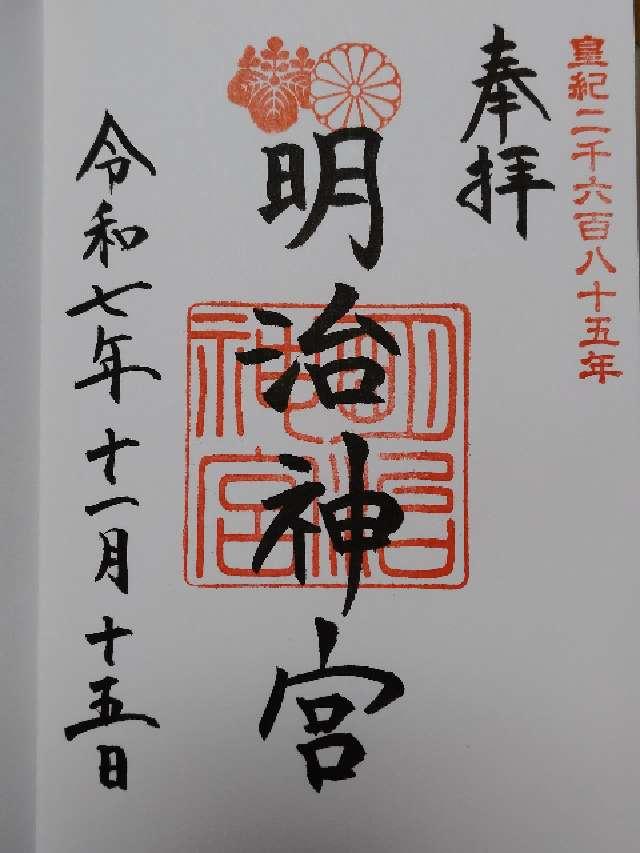 皇紀二千六百八十五年
奉拝
明治神宮
明治神宮
令和七年十一月十五日